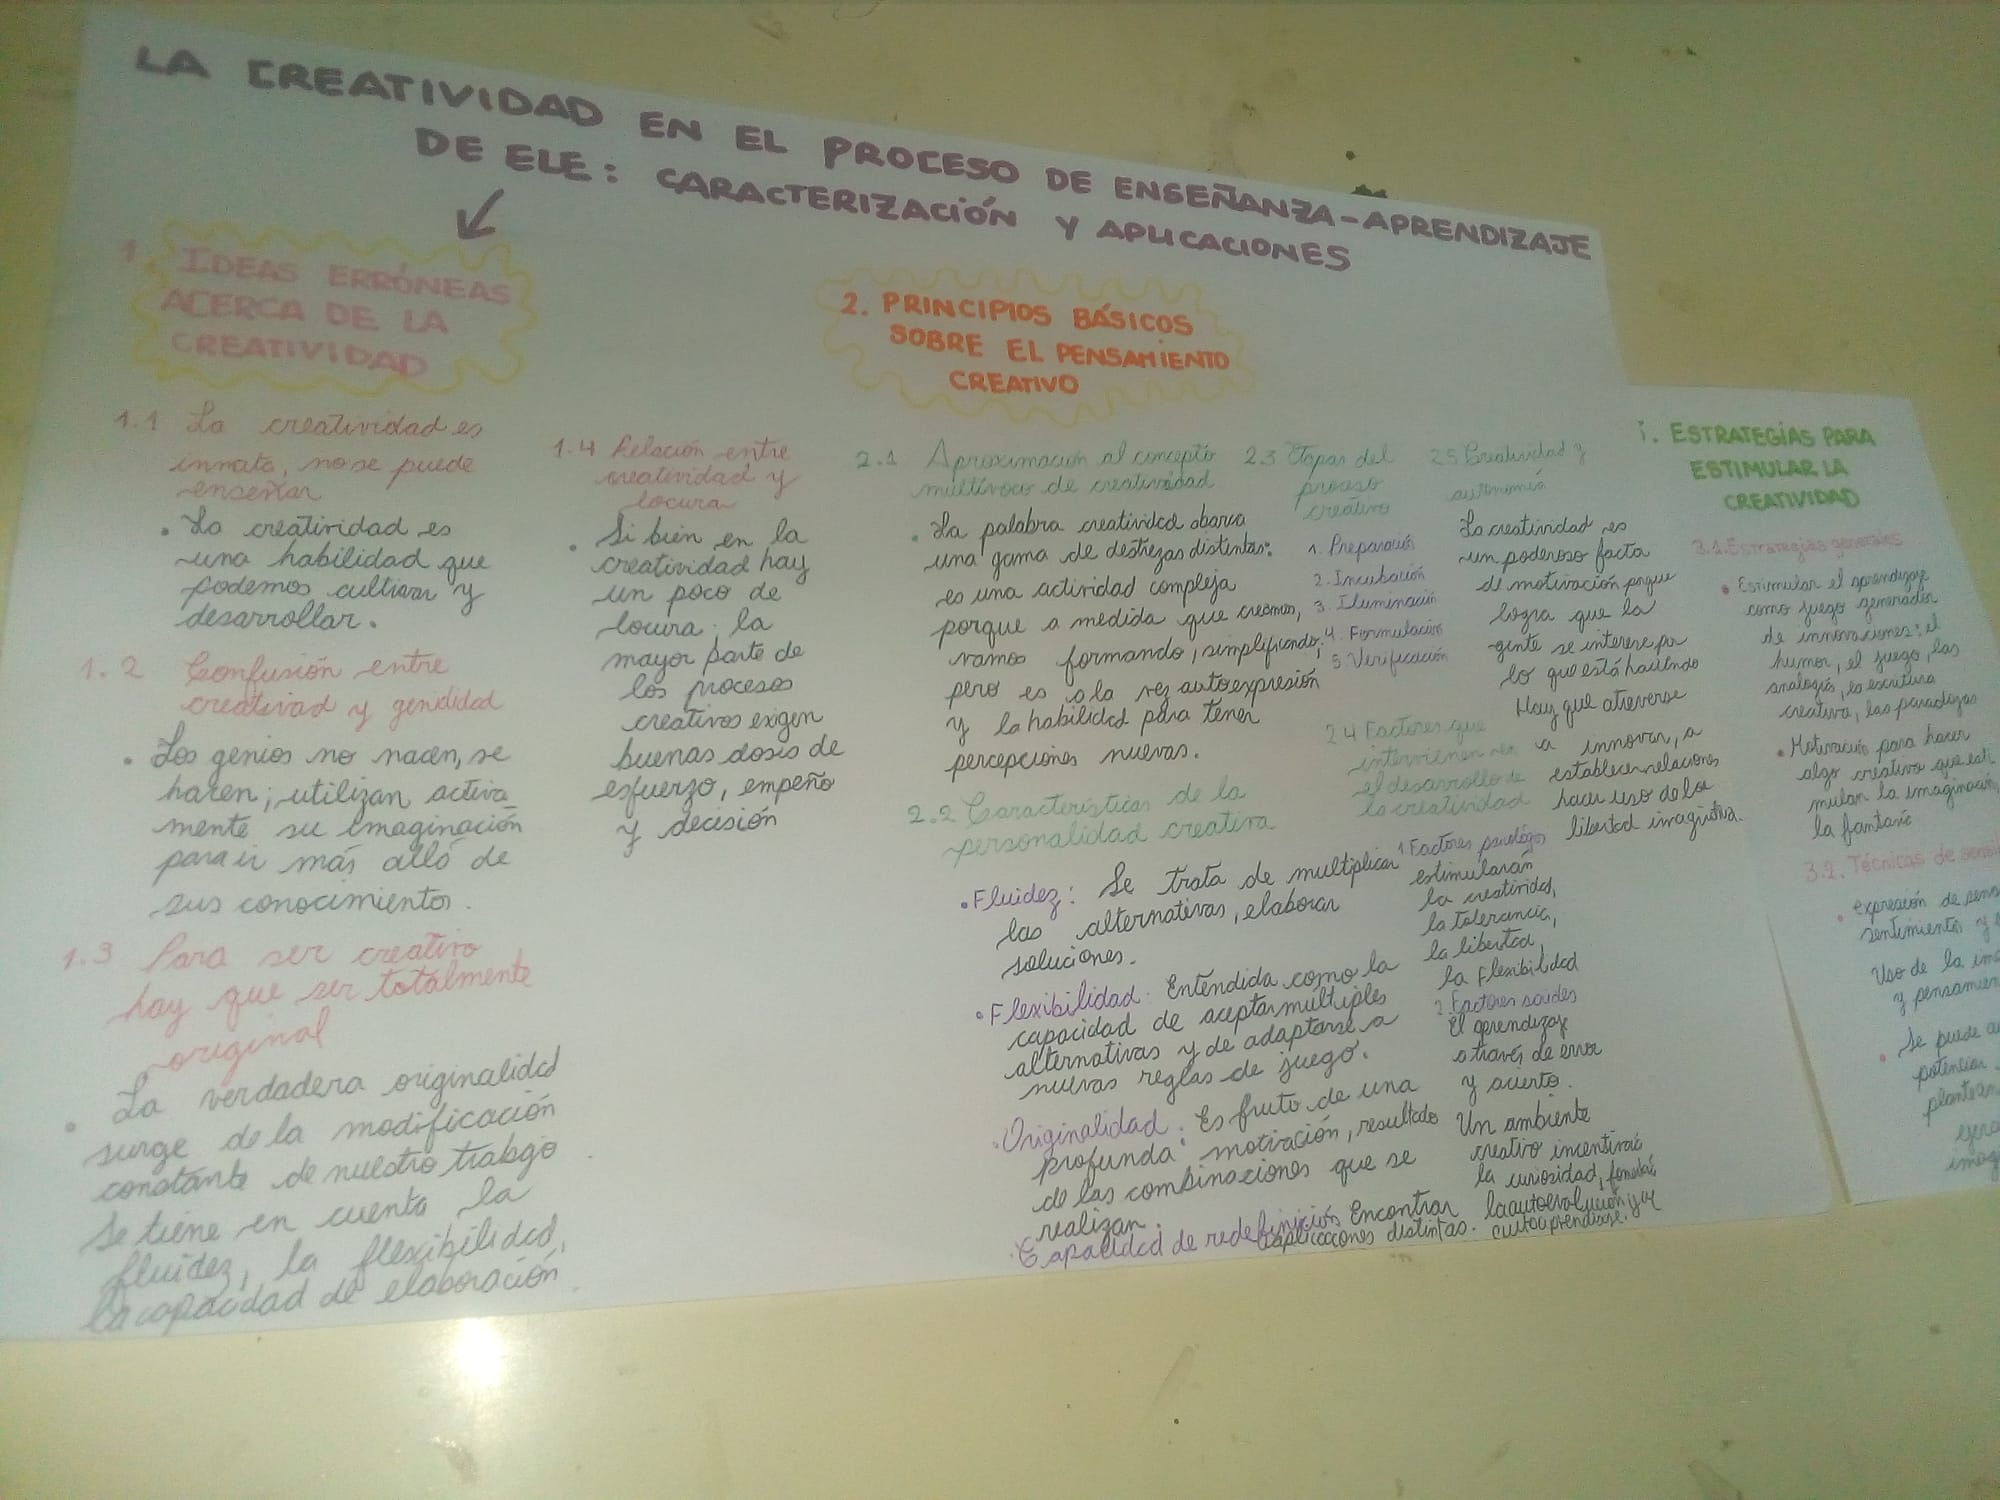 LA CREATIVIDAD EN EL PROCESO DE ENSEÑANZA-APRENDIZAJE
DE ELE: CARACTERIZACIÓN Y APLICACIONES
1. IDEAS ERRÓNEAS
ACERCA DE LA
CREATIVIDAD
1.1 La creatividad es
innata, no se puede
enseñar
• La creatividad es
una habilidad que
podemos cultivar y
desarrollar.
1.2 Confusión entre
creatividad y genialidad
• Los genios no nacen, se
hacen; utilizan activa
mente su imaginación
para ir más allá de
sus conocimientos.
1.3 Para ser creativo
hay que ser totalmente
original
• La verdadera originalidad
surge de la modificación
constante de nuestro trabajo
Se tiene en cuenta la
fluidez, la flexibilidad,
la capacidad de elaboración.
1.4 Relación entre
creatividad y
locura
• Si bien en la
creatividad hay
un poco de
locura, la
mayor parte de
los procesos
creativos exigen
buenas dosis de
esfuerzo, empeño
y decisión
2. PRINCIPIOS BÁSICOS
SOBRE EL PENSAMIENTO
CREATIVO
2.1 Aproximación al concepto
multívoco de creatividad
• La palabra creatividad abarca
una gama de destrezas distintas:
es una actividad compleja
porque a medida que creamos,
vamos formando, simplificando,
pero es a la vez autoexpresión
y la habilidad para tener
percepciones nuevas.
2.2 Características de la
personalidad creativa
• Fluidez: Se trata de multiplicar
las alternativas, elaborar
soluciones.
• Flexibilidad: Entendida como la
capacidad de aceptar múltiples
alternativas y de adaptarse a
nuevas reglas de juego.
• Originalidad: Es fruto de una
profunda motivación, resultado
de las combinaciones que se
realizan.
• Capacidad de redefinición Encontrar
aplicaciones distintas.
2.3 Etapas del
proceso
creativo
1. Preparación
2. Incubación
3. Iluminación
4. Formulación
5. Verificación
2.4 Factores que
intervienen en
el desarrollo de
la creatividad
1 Factores
estimularán
la creatividad,
la tolerancia,
la libertad,
la flexibilidad
2. Factores
El aprendizaje
a través de error
y acierto.
Un ambiente
creativo incentivará
la curiosidad,
la autoevaluación y
autoaprendizaje.
2.5 Creatividad y
autonomía
La creatividad es
un poderoso facto
de motivación porque
logra que la
gente se interese por
lo que está haciendo
Hay que atreverse
a innovar, a
establecer relaciones
hacer uso de la
libertad imaginativa.
ESTRATEGÍAS PARA
ESTIMULAR LA
CREATIVIDAD
3.1. Estrategias generales
• Estimular el aprendizaje
como juego generador
de innovaciones: el
humor, el juego, las
analogías, la escritura
creativa, las paradojas
• Motivación para hacer
algo creativo que esti
mulan la imaginación,
la fantasía
3.2. Técnicas de
• expresión de
sentimientos y
Uso de la
y
• Se puede
potenciar